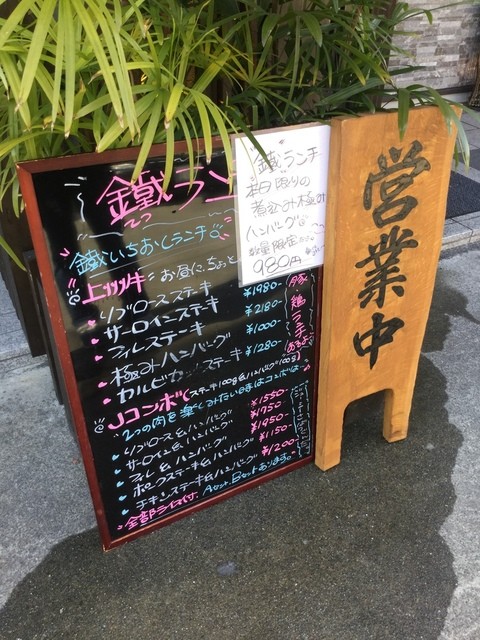 鐵ラン
てつ
鐵いちおしランチ
上州牛 お昼に、ちょっと
リブロースステキ
サーロインステキ ¥1980-
フィレステーキ ¥2180-
極みハンバーグ ¥1000-
カルビカットステーキ ¥1280-
Jコンボ(ステーキ100g&ハンバーグ100g)
2つの肉を楽しみたい時はコンボは
リブロース&ハンバーグ ¥1550-
サーロイン&ハンバーグ ¥1750-
フィレ&ハンバーグ ¥1950-
ポークステーキ&ハンバーグ ¥1150-
チキンステーキ&ハンバーグ ¥1200-
全部ライス付. Aセット、Bセットあります。
豚
鶏
ランチ
鐵ランチ
本日限りの
煮込み極み
ハンバーグ
数量限定
980円
営業中